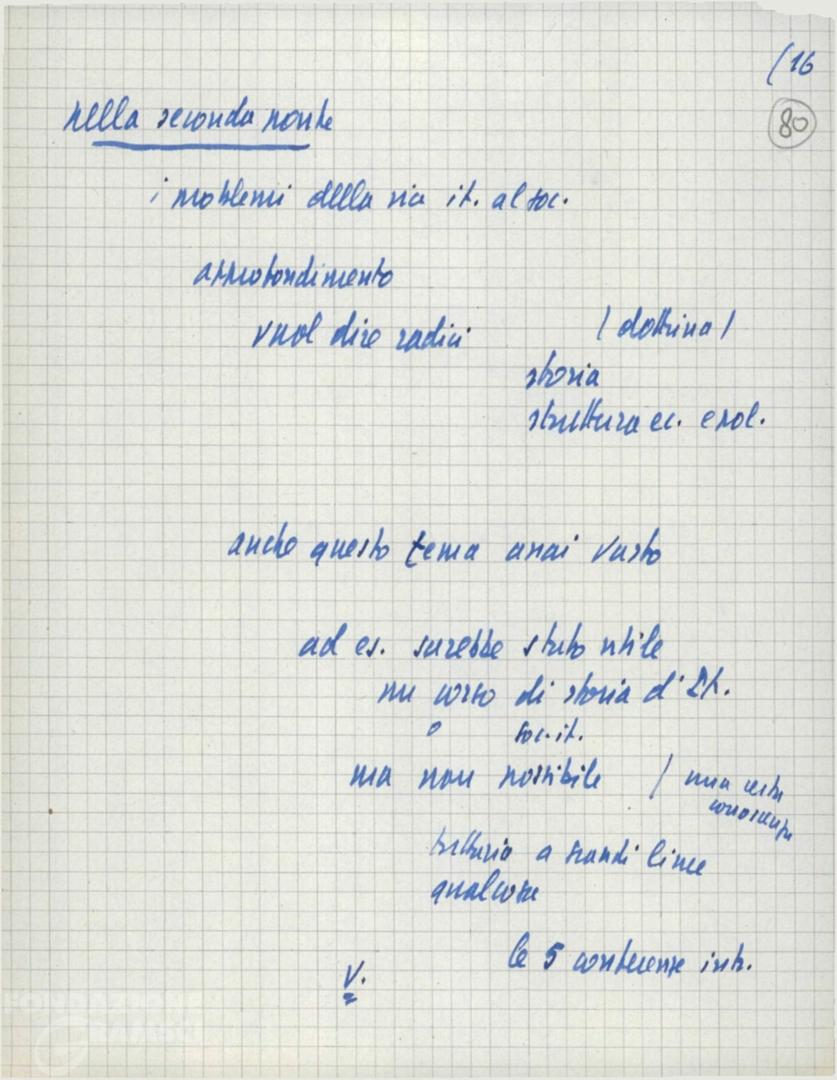 (16
80
nella seconda parte
i problemi della via it. al soc.
approfondimento
vuol dire radici
(dottrina)
storia
struttura ec. e pol.
anche questo tema assai vasto
ad es. sarebbe stato utile
un corso di storia d'It.
o soc. it.
ma non possibile / una certa
conoscenza
tuttavia a grandi linee
qualcosa
le 5 conferenze intr.
V.
FONDAZIONE
GRAMSCI